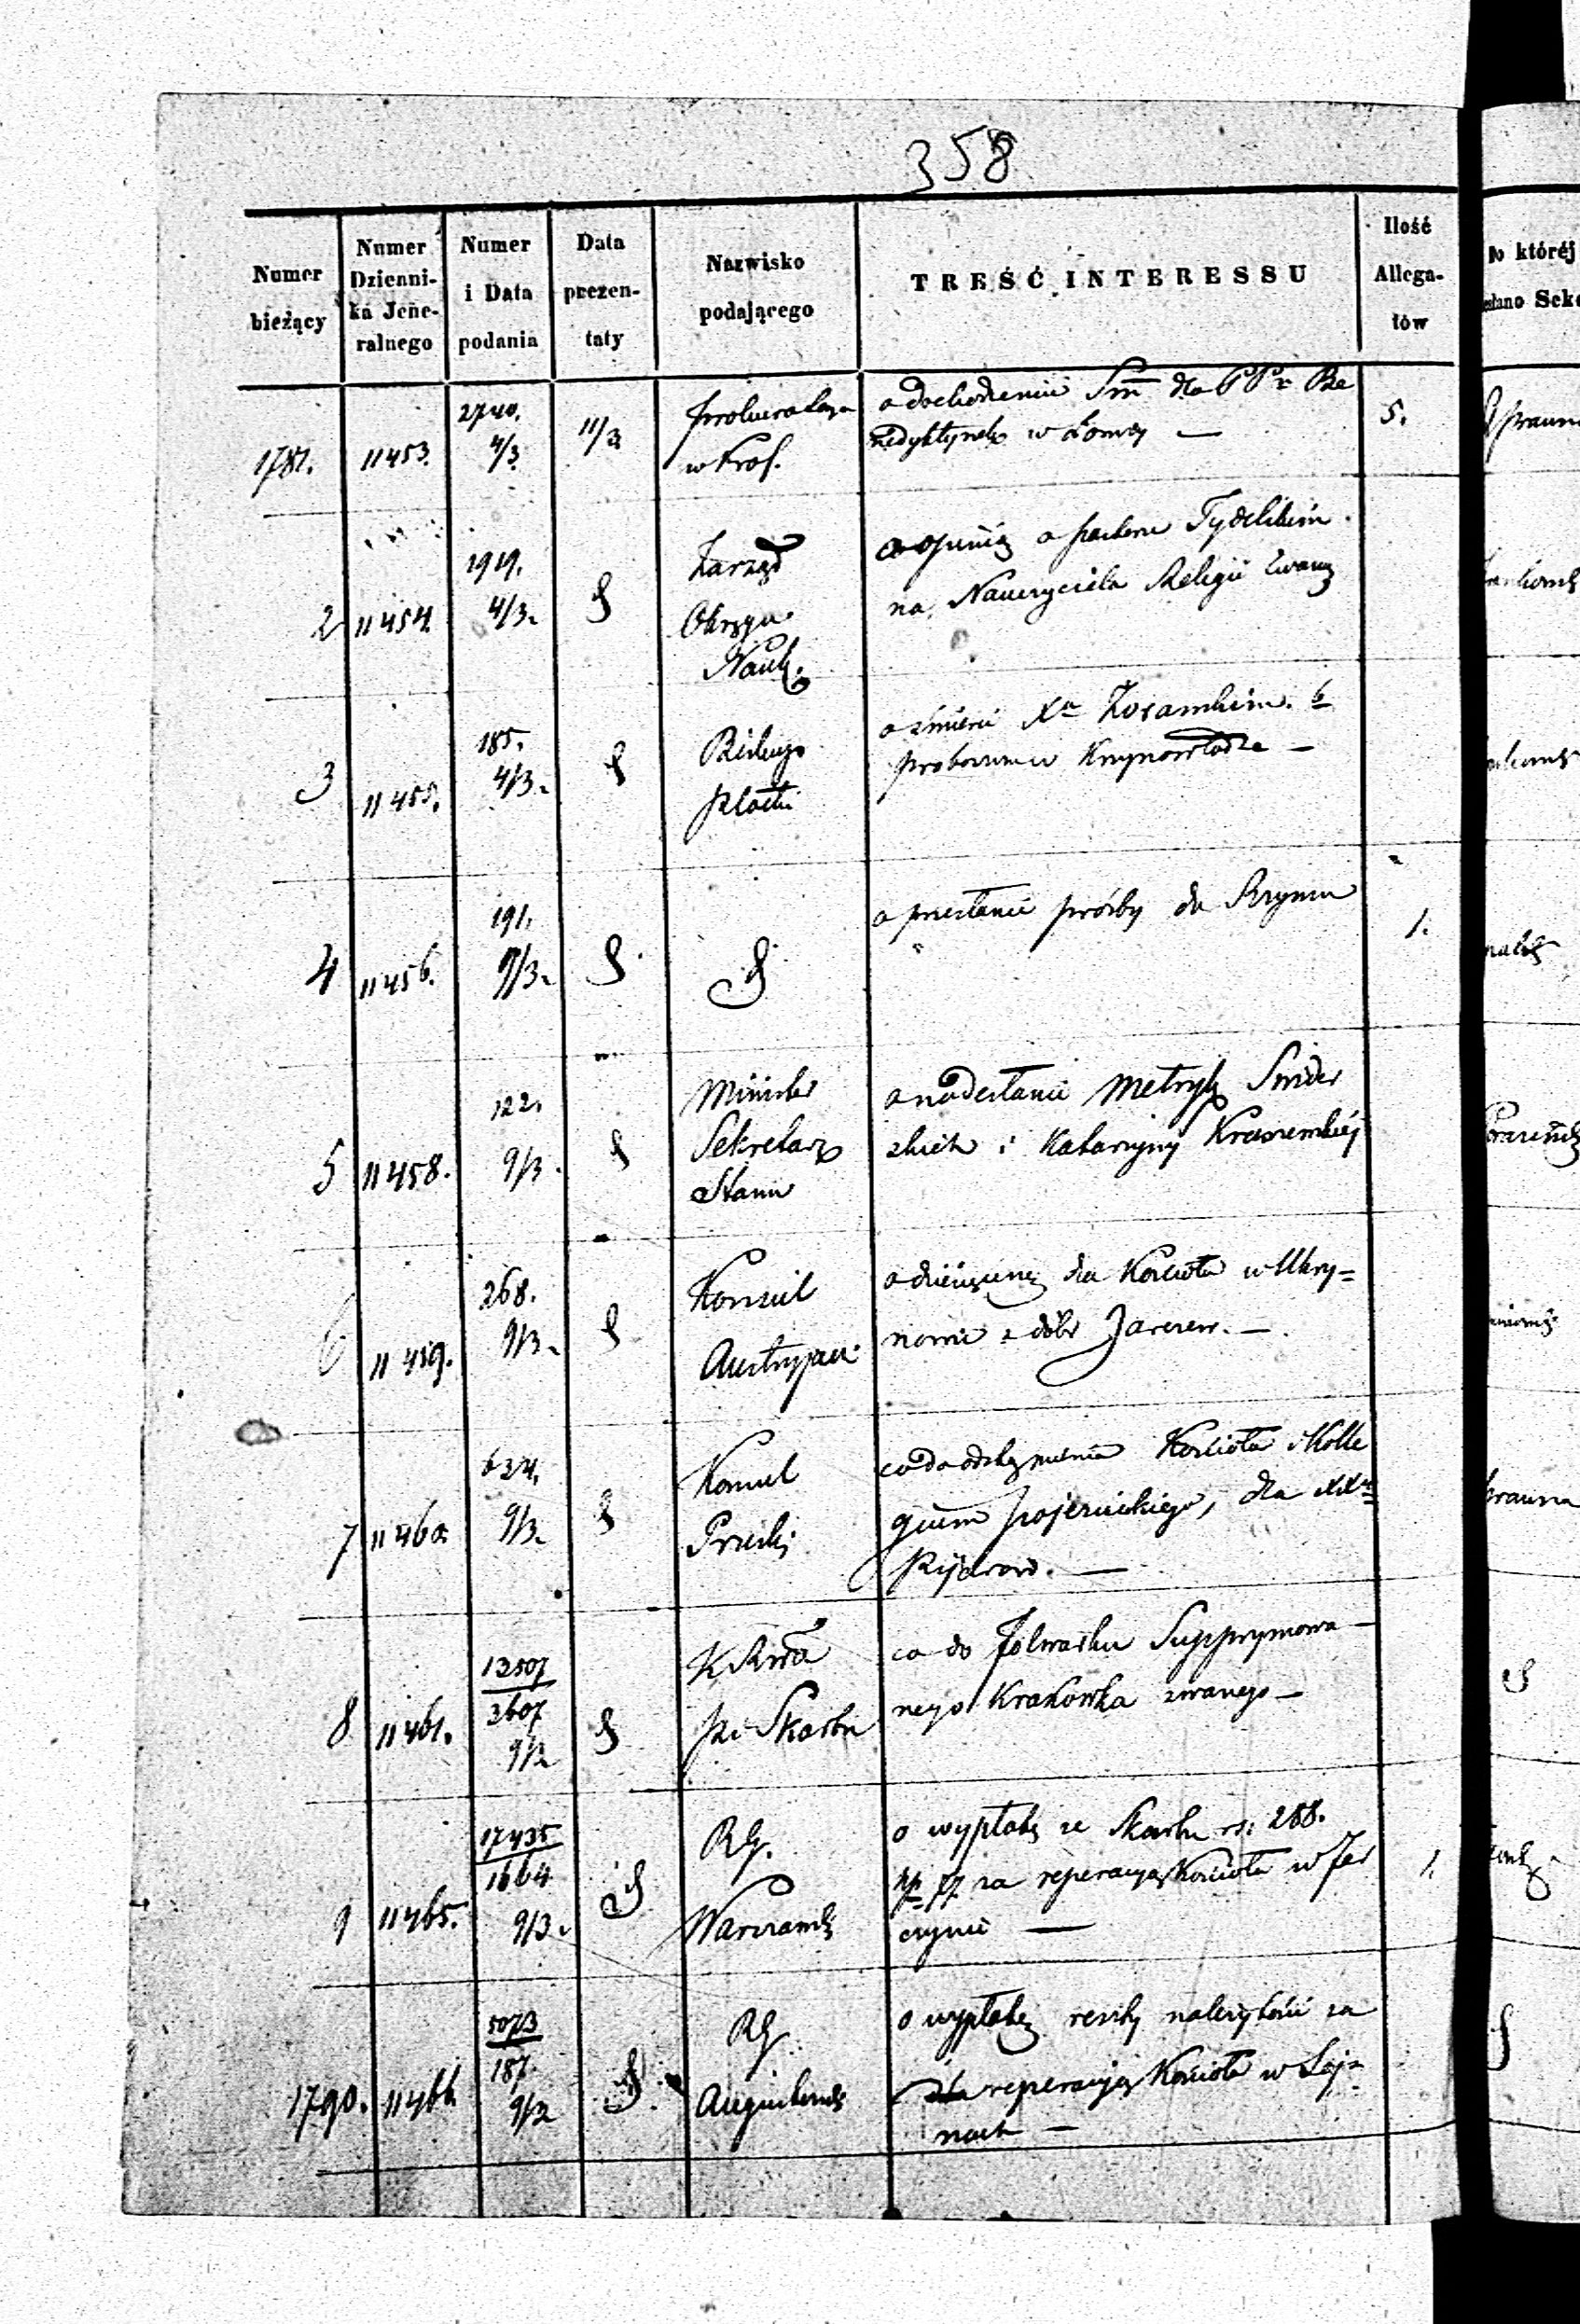 358
Numer bieżący
Numer Dzienni-ka Jene-ralnego
Numer i Data podania
Data prezen-taty
Nazwisko podającego
TREŚĆ INTERESSU
Ilość Allega-tów
1781. 11453. 2740. 4/3 11/3
w Prof.
o dochodzenie Sm̄ dla PP. Be
nedyktynek w Łomży — 5.
2 11454 1919. 4/3.
Zarząd
Okręgu
Nauk.
o opinią o pastorze Tydelskim
na Nauczyciela Religii Ewang
3 11455. 185. 4/3.
Biskup
Płocki
o śmierci Xa
proboszcza w Krzynowłodze —
4 11456. 191. 9/3.
o przesłanie próśby do Rzymu 1.
5 11458. 122. 9/3.
Minister
Sekretarz
Stanu
o nadesłanie Metryk Świder
skich i Katarzyny
6 11459. 268. 9/3.
Konsul
Austryjacki
o dziesięcinę dla Kościoła w Uhry=
nowie z dóbr Jarczew. —
7 11460. 634. 9/3.
Konsul
Pruski
co do odstąpienia Kościoła i Kolle
gium pojezuickiego, dla XX
Pijarów. —
8 11461. 13507 3607 9/3
K Rwa
pi Skarbu
co do folwarku Supprymowa—
nego Krakówka zwanego —
9 11465. 17435 1664 9/3.
RG.
Warszawski
o wypłatę ze Skarbu rs: 288.
kp 77 za reperacyą Kościoła w Jer
czynie — 1.
1790. 11466 5073 187. 9/3
RG
Augustowski
o wypłatę reszty należytości za
reperacyją Kościoła w Sej=
nach —